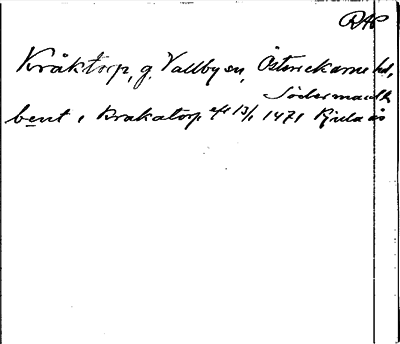 RAP
Kråktorp, g. Vallby sn, Österrekarne hd,
Södermanl
bent i Krakatorp afs 13/1 1471 Kjula ås